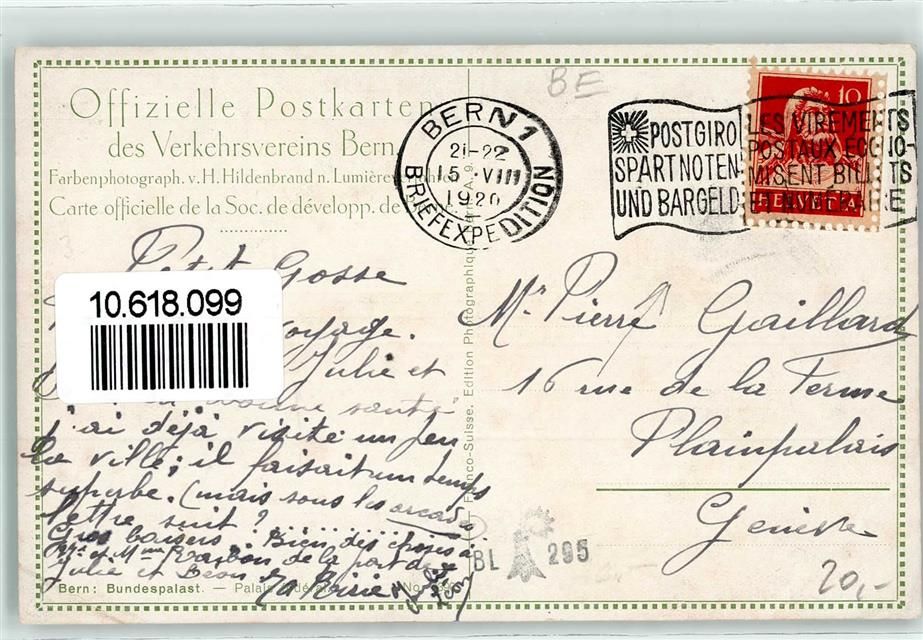 BE
Offizielle Postkarten
des Verkehrsvereins Bern.
Farbenphotograph. v. H. Hildenbrand n. Lumière
Carte officielle de la Soc. de développ. de
BERN 1
21-22
15. VIII
1920
BRIEFEXPEDITION
POSTGIRO
SPART NOTEN
UND BARGELD
LES VIREMENTS
POSTAUX ECONO-
MISENT BILLETS
ET NUMERAIRE
10
HELVETIA
Petit Gosse
10.618.099
voyage.
Julie et
bonne santé
j'ai déjà visité un peu
la ville; il faisait un temps
superbe. (mais sous les arcades
lettre suit ?
Gros baisers. Bien des choses à
Mr. et Mme de la part de
Julie et
Mr. Pierre Gaillard
16 rue de la Ferme
Plainpalais
Genève
Franco-Suisse. Edition Photographique
BL 295
20,-
Bern: Bundespalast. — Palais fédéral No.